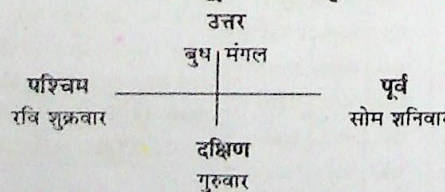 उत्तर
बुध मंगल
पश्चिम पूर्व
रवि शुक्रवार सोम शनिवार
दक्षिण
गुरुवार